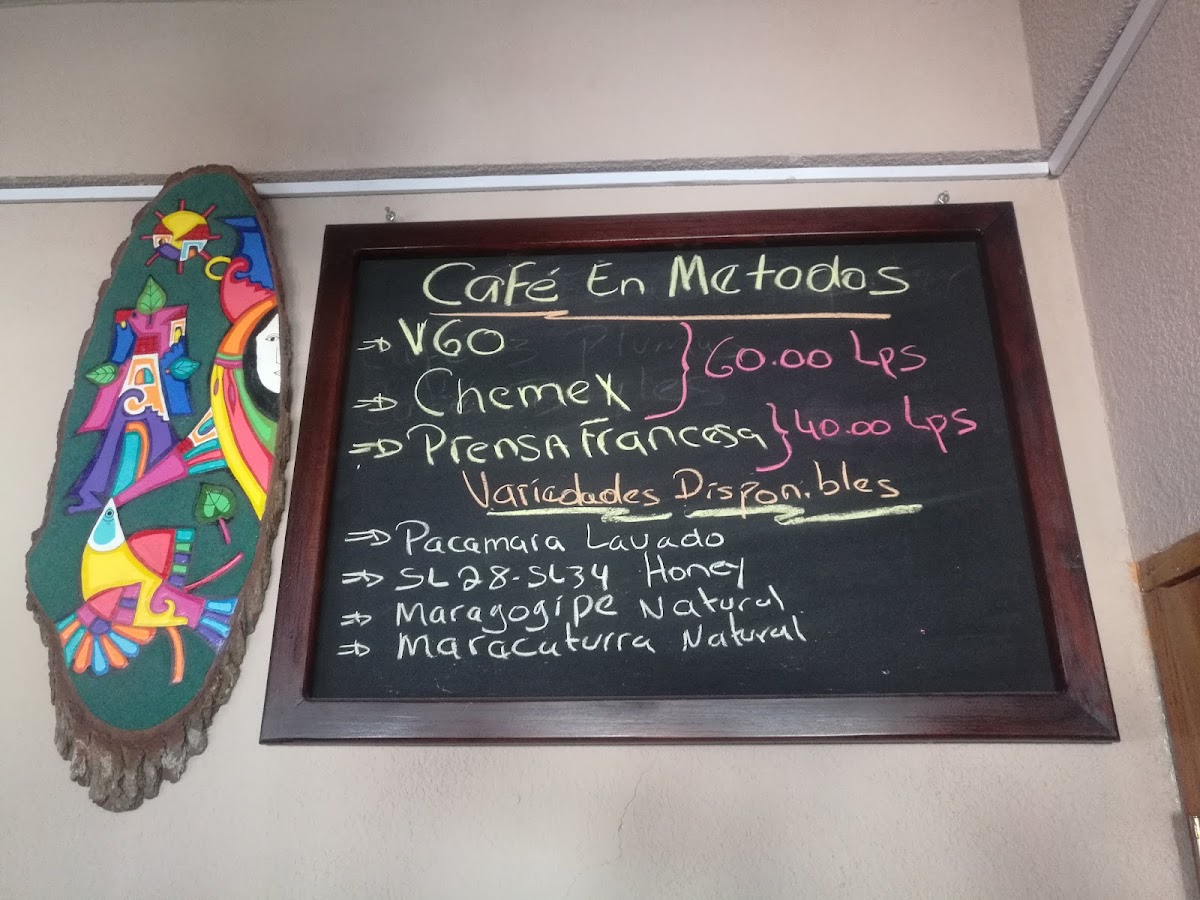 Café En Metodos
⇒ V60
⇒ Chemex } 60.00 Lps
⇒ Prensa Francesa } 40.00 Lps
Variedades Disponibles
⇒ Pacamara Lavado
⇒ SL28-SL34 Honey
⇒ Maragogipe Natural
⇒ Maracaturra Natural